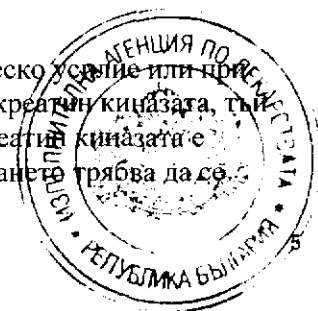 еско усилие или при
креатин киназата, тъй
еатин киназата е
ането трябва да се
ИЗПЪЛНИТЕЛНА АГЕНЦИЯ ПО ЛЕКАРСТВАТА
РЕПУБЛИКА БЪЛГАРИЯ
5